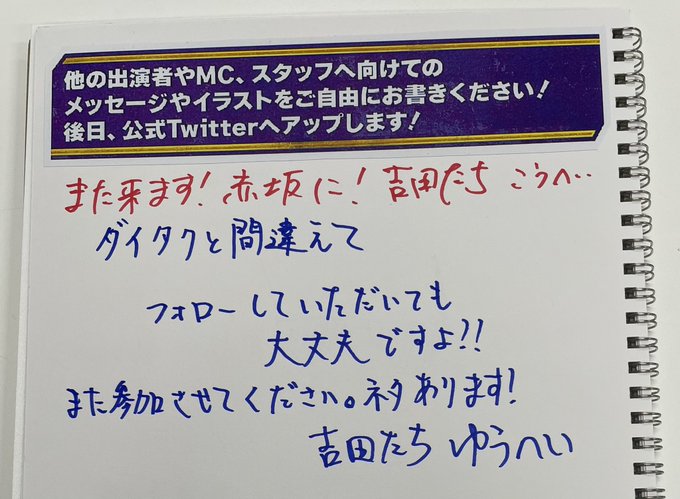 他の出演者やMC、スタッフへ向けての
メッセージやイラストをご自由にお書きください!
後日、公式Twitterへアップします!
また来ます!赤坂に!吉田たち こうへ‥
ダイタクと間違えて
フォローしていただいても
大丈夫ですよ!!
また参加させてください。ネタあります!
吉田たち ゆうへい